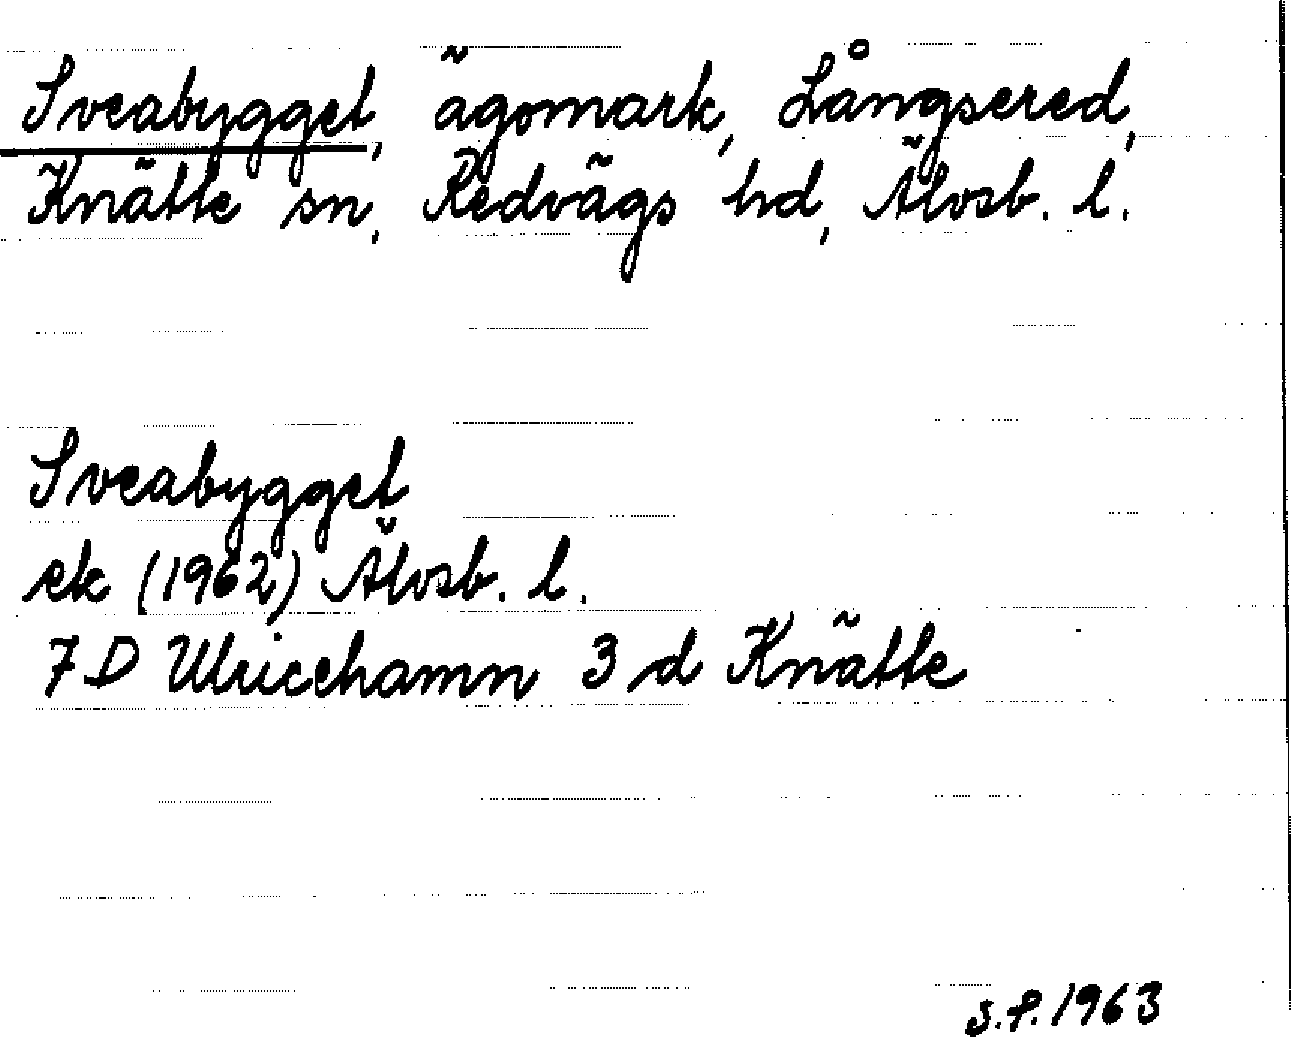 Sveabygget, ägomark, Långsered,
Knätte sn, Redvägs hd, Älvsb. l.
Sveabygget
ek (1962) Älvsb. l.
7D Ulricehamn 3 d Knätte
S.F. 1963